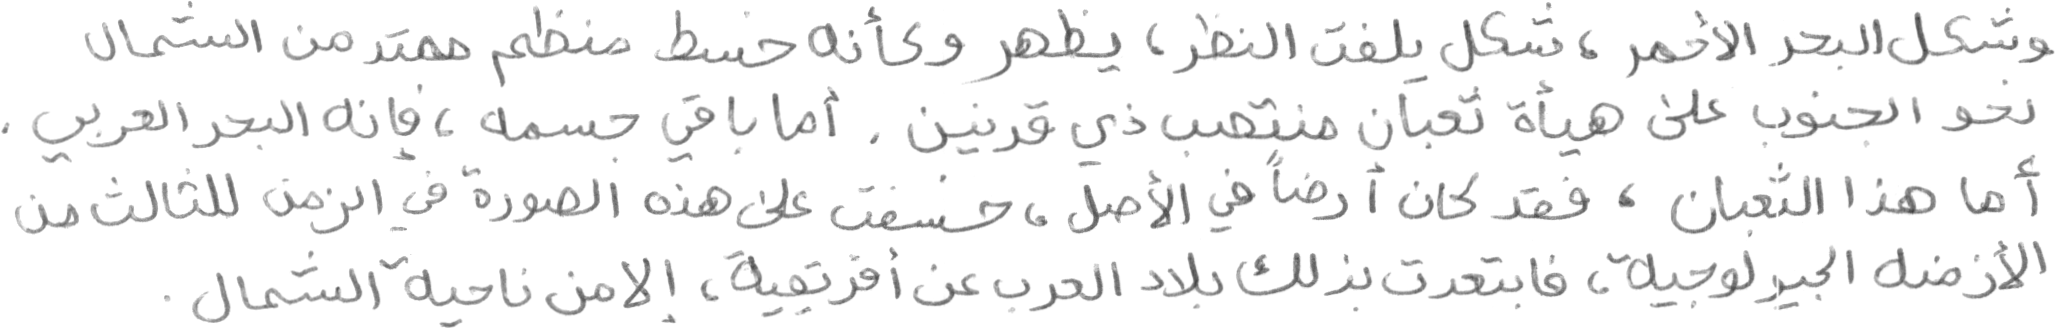 وشكل البحر الأحمر، شكل يلفت النظر، يظهر وكأنه خسط منظم ممتد من الشمال
نحو الجنوب على هيأة ثعبان منتصب ذي قرنين. أما باقي جسمه، فإنه البحر العربي.
أما هذا الثعبان، فقد كان أرضاً في الأصل، خسفت على هذه الصورة في الزمن للثالث من
الأزمنه الجيولوجية، فابتعدت بذلك بلاد العرب عن أفريقية، إلا من ناحية الشمال.